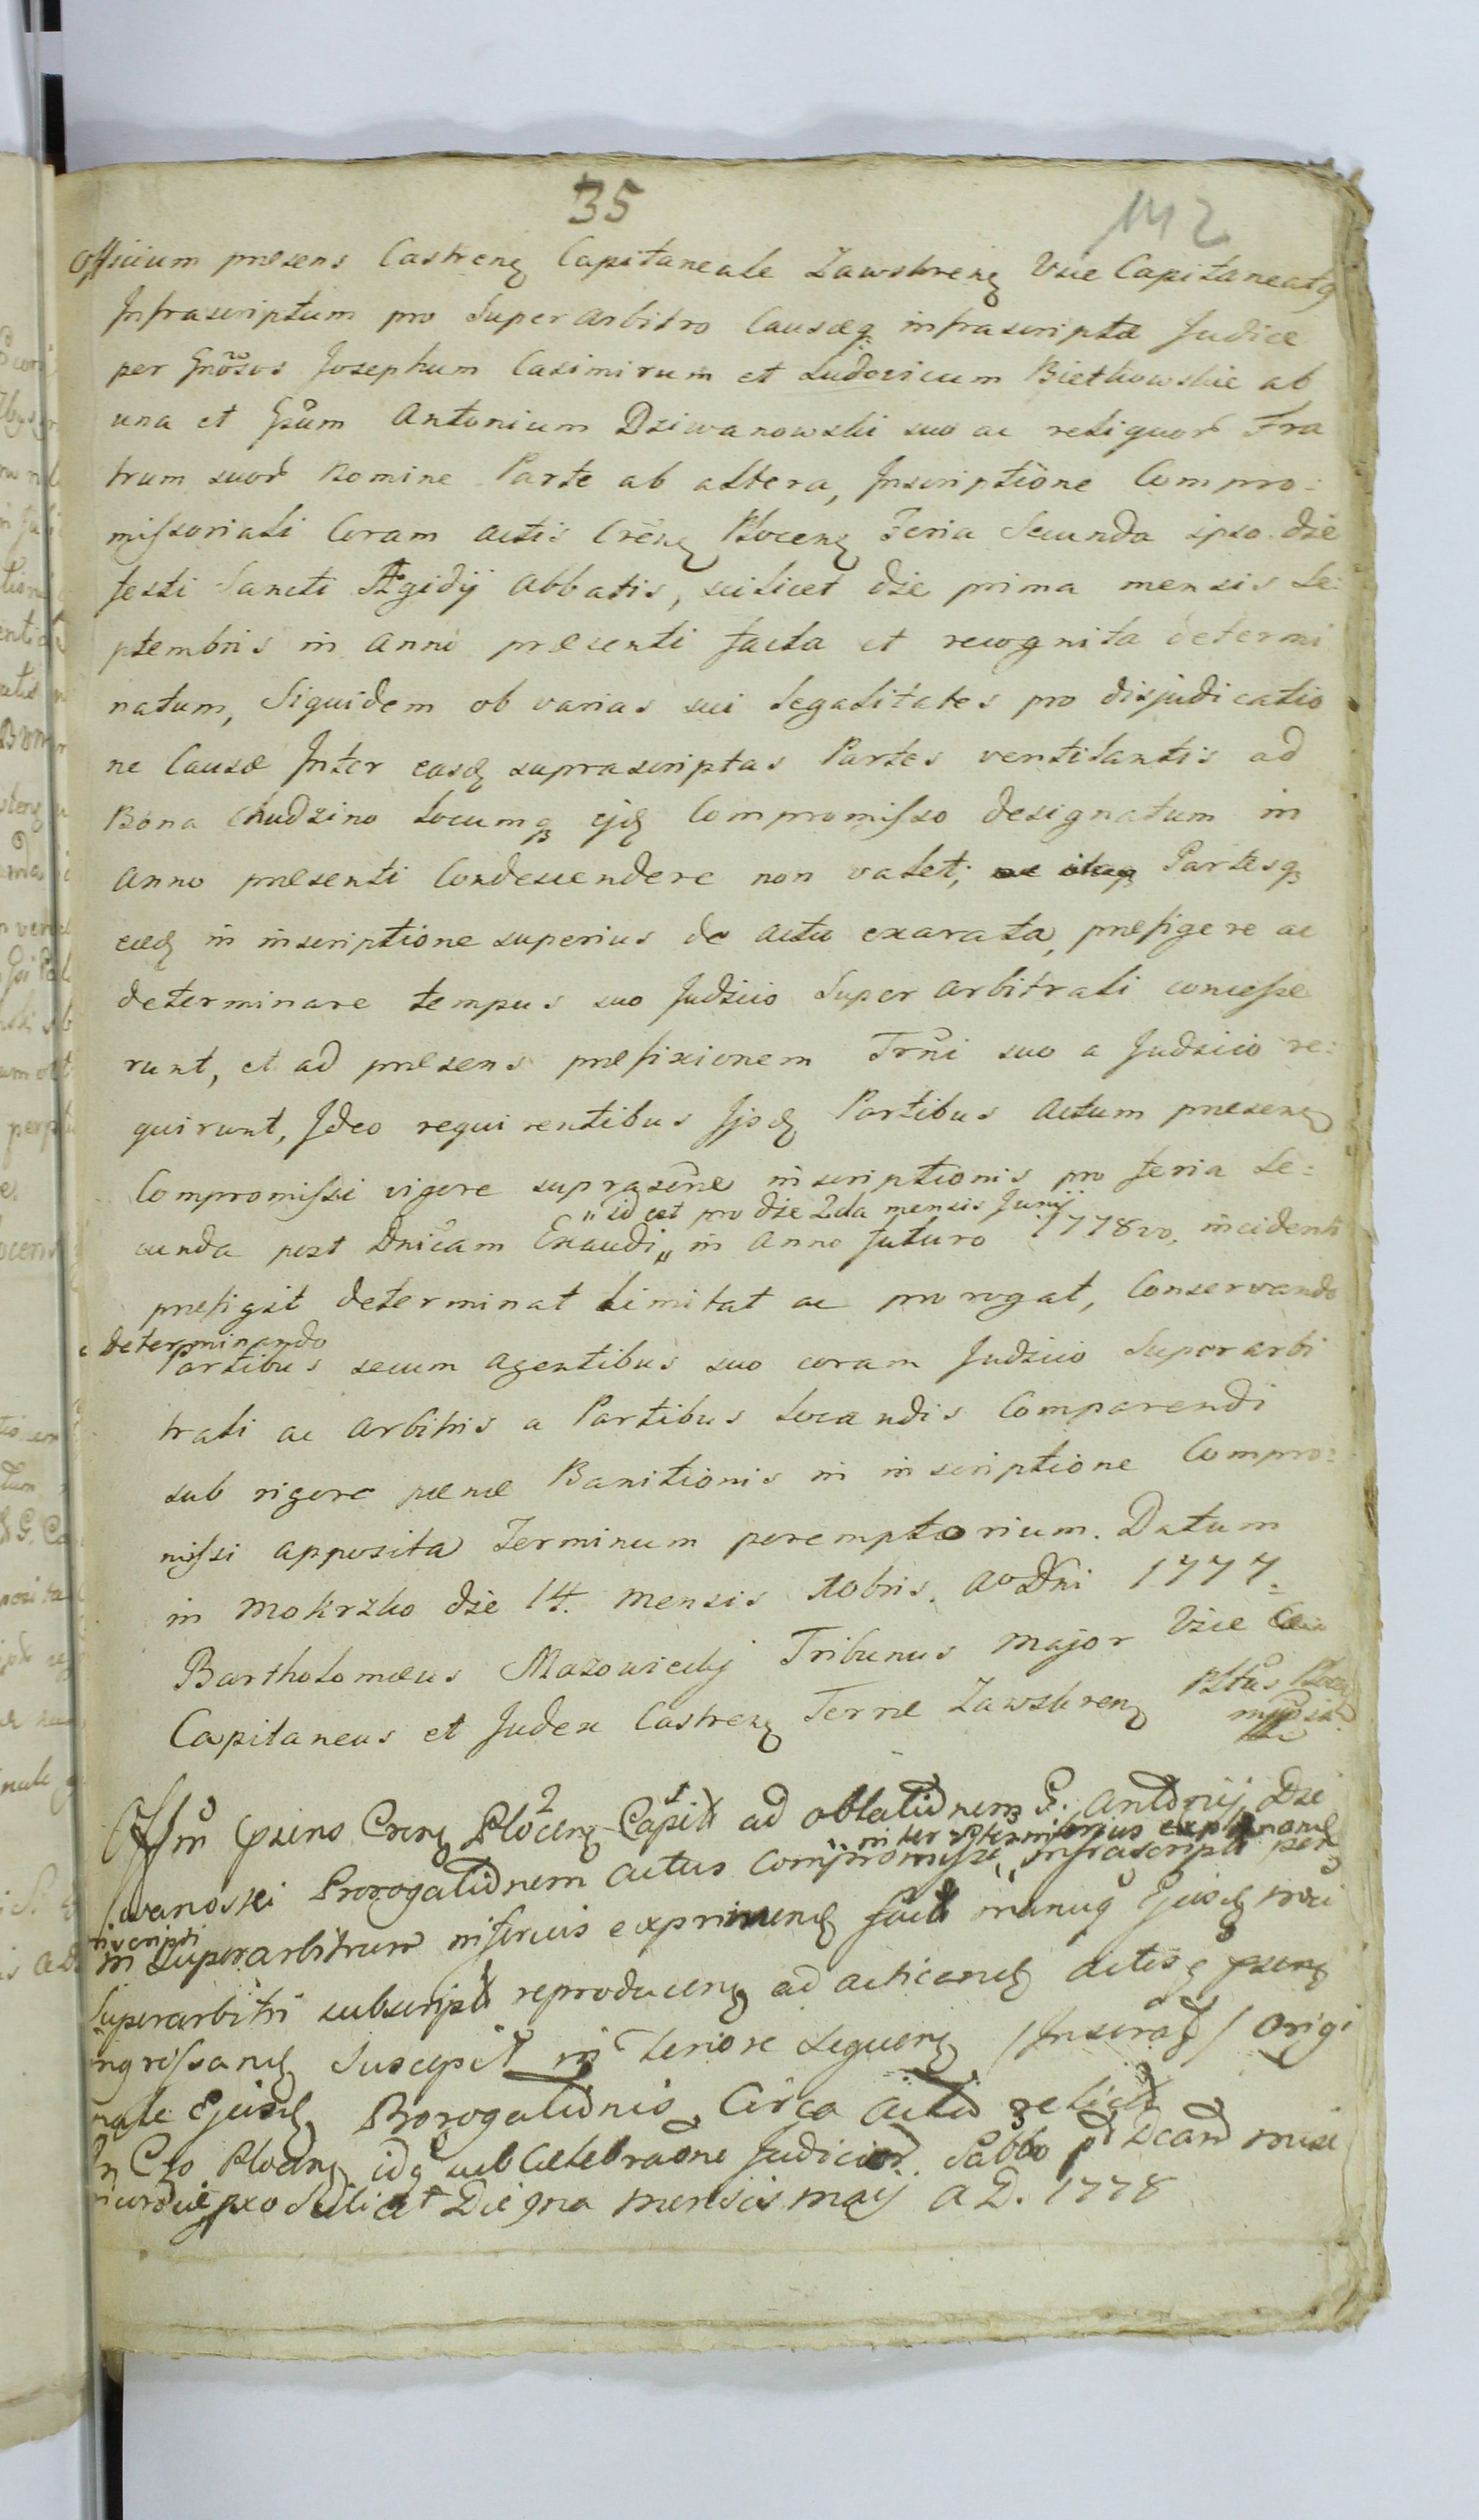 35
142
Officium præsens Castrenꝫ Capitaneale Zawskrenꝫ Vice Capitaneatꝫ
Infrascriptum pro Super Arbitro Causæqꝫ infrascriptæ Judice
per Gnõsos Josephum Casimirum et Ludovicum Bietkowskie ab
una et Gsũm Antonium Dziwanowski suo ac reliquor Fra
trum suor Nomine Parte ab altera, Inscriptione Compro:
missoriali Coram actis Crẽnꝫ Plocenꝫ Feria Secunda ipso die
festi Sancti Ægidij Abbatis, scilicet die prima mensis Se:
ptembris in Anno præsenti facta et recognita determi
natum, Siquidem ob varias sui legalitates pro disjudicatio
ne Causæ Inter easdꝫ suprascriptas Partes ventilantis ad
Bona Chudzino locumqꝫ ejdꝫ Compromisso designatum in
anno præsenti Condescendere non valet; Partesqꝫ
eædꝫ in inscriptione superius de actu exarata, præfigere ac
determinare tempus suo Judicio Super arbitrali concesse
runt, et ad præsens præfixionem Trñi suo a Judicio re:
quirunt, Ideo requirentibus Ijsdꝫ Partibus Actum præsenꝫ
Compromissi vigore suprascr̃æ inscriptionis pro feria Se:
„ id est pro die 2da mensis Junij
cunda post Dnĩcam Exaudi „ in Anno futuro 1778vo. incidenti
præfigit determinat limitat ac prorogat, Conservando
determinando
Partibus secum agentibus suo coram Judicio Superarbi
trali ac arbitris a Partibus locandis Comparendi
sub rigore pænæ Banitionis in inscriptione Compro:
missi apposita Terminum peremptorium. Datum
in Mokrzko die 14. Mensis Xobris. Ao Dñi 1777.
Bartholomæus Mazowiecky Tribunus Major Vice
Capitaneus et Judex Castrenꝫ Terræ Zawskrenꝫ Pltũs Plocen
mppria
Offm̃ pñsens Crenꝫ Plocenꝫ Capit ad oblationem G. Antonij Dzi
wanoski Prorogationem actus Compromissi infrascripti per
Superarbitrum inferius exprimendꝫ facta manuqꝫ Ejusdꝫ
Superarbitri subscripta reproducenꝫ ad acticandꝫ actisqꝫ pnsenꝫ
ingrossandꝫ Suscepit in Tenore Sequenꝫ /Inserat/ Origi
nale Ejusdꝫ Prorogationis Circa acta relicta
In Cro Plocenꝫ idqꝫ sub Celebraone Judicior. Sabbo pt Dcam mise
ricordiæ pxo Scilicet Die 9na mensis maij A D. 1778